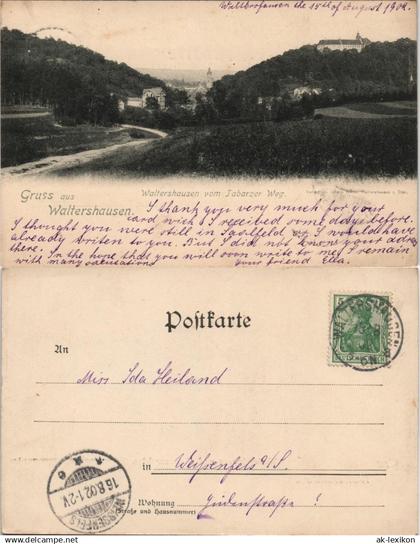 Waltershausen the 15th of August 1902.
Gruss aus
Waltershausen.
Waltershausen vom Tabarzer Weg.
I thank you very much for your
card wich I received some days before.
I thought you were still in Saalfeld or I would have
already writen to you. But I did not know your adres
there. In the hope that you will soon write to me I remain
with many
your friend Ella.
Postkarte
An
Miss Ida Heiland
in Weißenfels a/S.
Wohnung Judenstraße!
(Straße und Hausnummer)
16.8.02.1-2V
© ak-lexikon